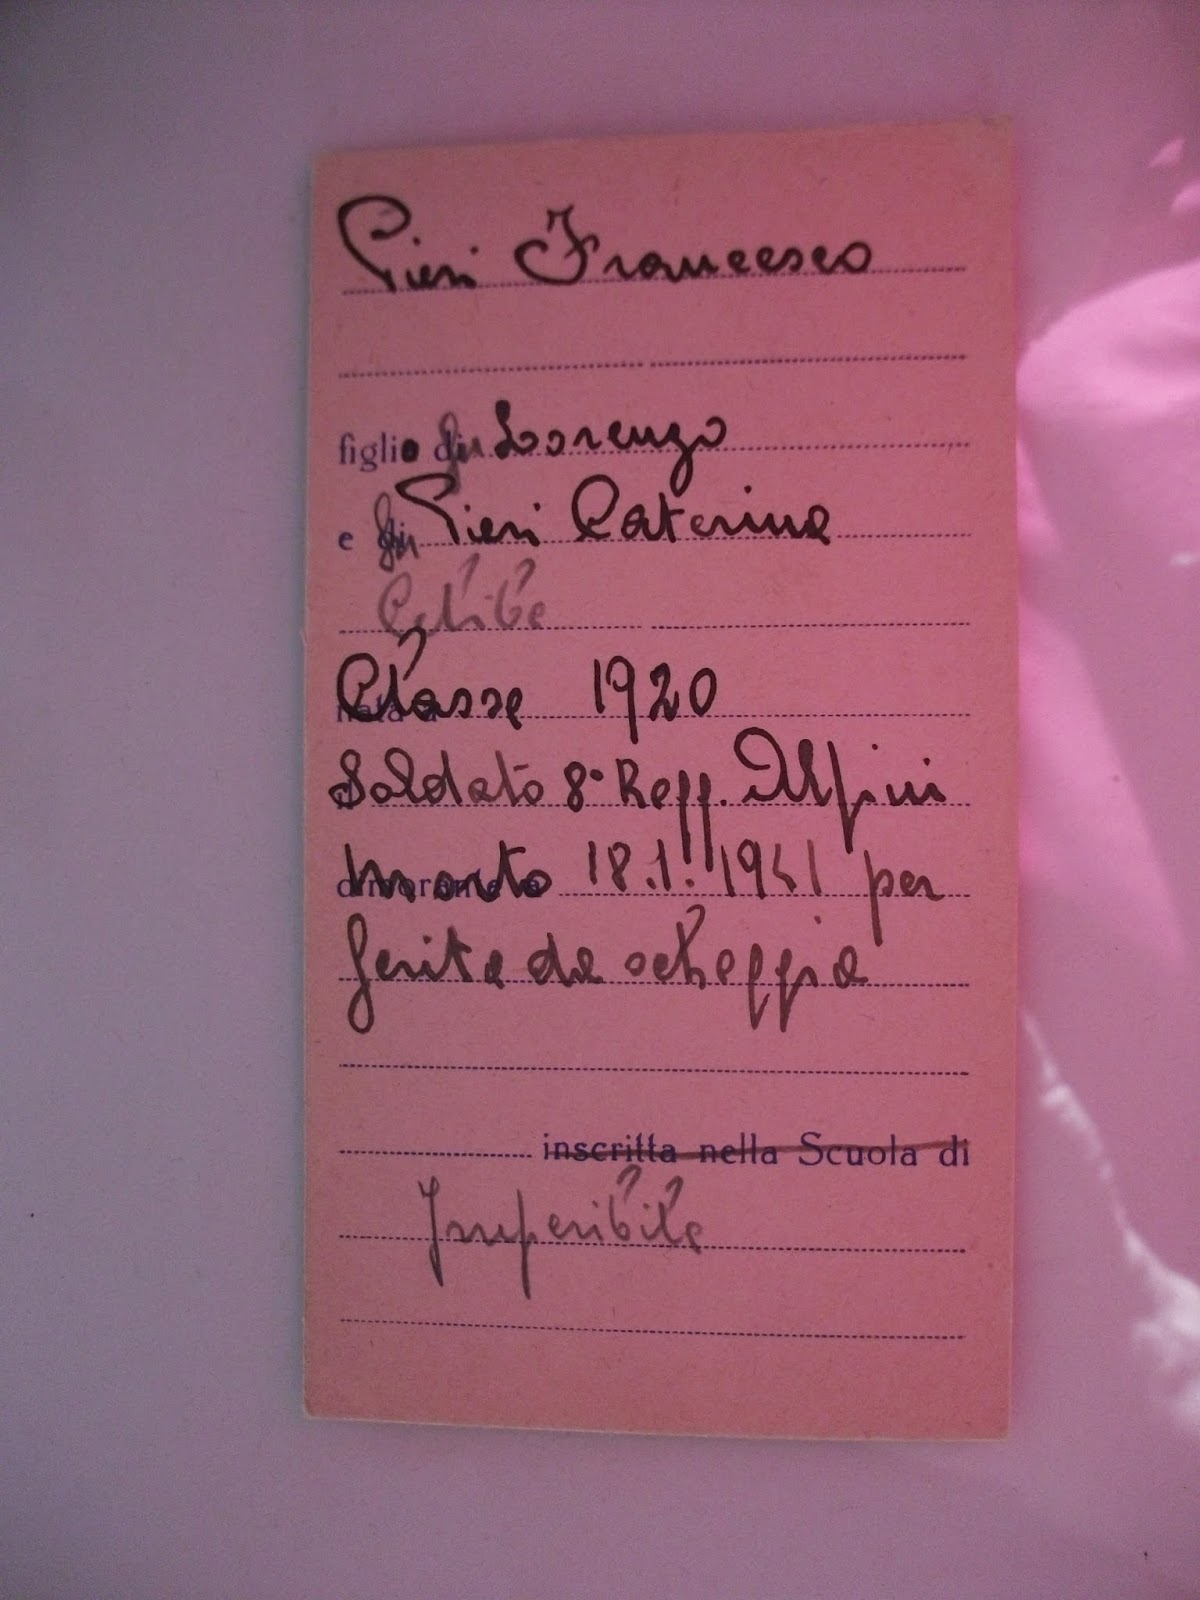 Pieri Francesco
figlio di fu Lorenzo
e di fu Pieri Caterina
Celibe
nata a Classe 1920
Soldato 8° Regg. Alpini
dimorante a morto 18.1.1941 per
ferite da scheggia
inscritta nella Scuola di
Irreperibile